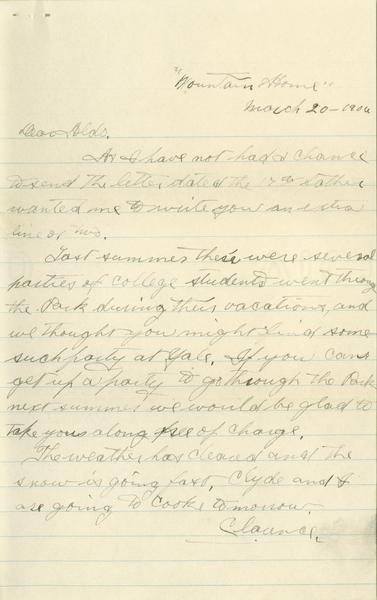 "Mountain Home"
March 20-1904
Dear Aldo.
As I have not had a chance
to send the letter dated the 17th father
wanted me to write you an extra
line or two.
Last summer there were several
parties of college students went through
the Park during their vacations, and
we thought you might find some
such party at Yale. If you can
get up a party to go through the Park
next summer we would be glad to
take you along free of charge.
The weather has cleared and the
snow is going fast. Clyde and I
are going to Cooke tomorrow.
Clarence.